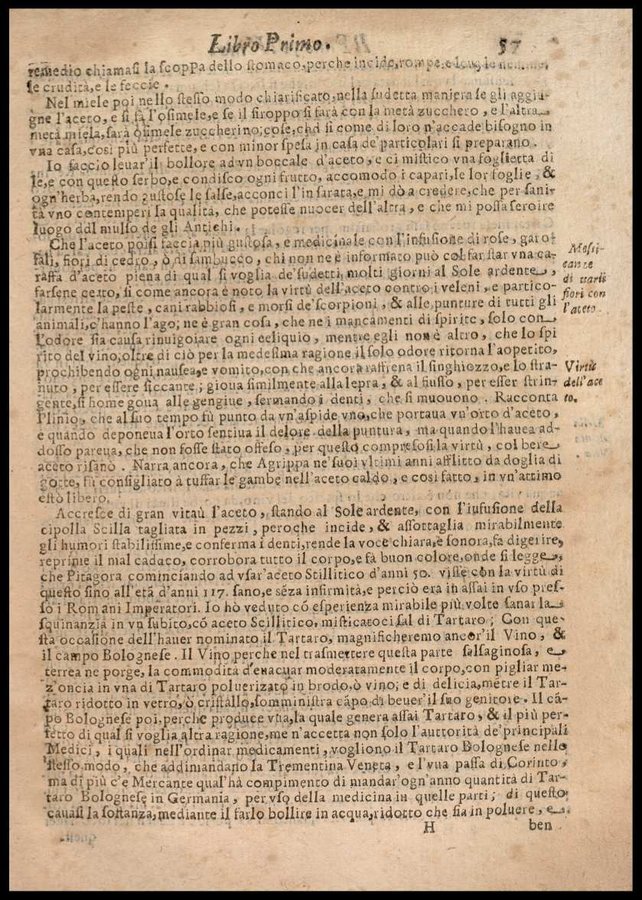 Libro Primo. 57
remedio chiamasi la scoppa dello stomaco, perche incide, rompe, e
le crudita, e le feccie.
Nel miele poi nello stesso modo chiarificato, nella sudetta maniera se gli aggiu-
gne l'aceto, e si fa l'osimele, e se il siroppo si farà con la metà zucchero, e l'altra
metà miela, sarà osimele zuccherino; cose, chd si come di loro n'accade bisogno in
vna casa, così più perfette, e con minor spesa in casa de particolari si preparano.
Io faccio leuar'il bollore ad vn boccale d'aceto, e ci mistico vna foglietta di
le, e con questo serbo, e condisco ogni frutto, accomodo i capari, le lor foglie, &
ogn'herba, rendo gustose le salse, acconci l'insarata, e mi dò a credere, che per sani-
tà vno contemperi la qualità, che potesse nuocer dell'altra, e che mi possa seruire
luogo ddl mulso de gli Antichi.
Che l'aceto poi si faccia più gustosa, e medicinale con l'infusione di rose, garof
fali, fiori di cedro, ò di sambucco, chi non ne è informato può col far star vna ca-
raffa d'aceto piena di qual si voglia de'sudetti, molti giorni al Sole ardente,
farsene certo, si come ancora è noto la virtù dell'aceto contro i veleni, e partico-
larmente la peste, cani rabbiosi, e morsi de'scorpioni, & alle punture di tutti gli
animali, c'hanno l'ago; ne è gran cosa, che ne i mancamenti di spirito, solo con
l'odore sia causa rinuigoiare ogni ecliquio, mentre egli non è altro, che lo spi
rito del vino, oltre di ciò per la medesima ragione il solo odore ritorna l'appetito,
prohibendo ogni nausea, e vomito, con che ancora raffrena il singhiozzo, e lo stra-
nuto, per essere siccante; gioua similmente alla lepra, & al flusso, per esser strin-
gente, si home goua alle gengiue, fermando i denti, che si muouono. Racconta
Plinio, che al suo tempo fù punto da vn'aspide vno, che portaua vn'orto d'aceto,
e quando deponeua l'orto sentiua il delore della puntura, ma quando l'hauea ad-
dosso pareua, che non fosse stato offeso, per questo compresosi la virtù, col bere
aceto risanò. Narra ancora, che Agrippa ne'suoi vltimi anni afflitto da doglia di
gotte, fù consigliato a tuffar le gambe nell'aceto caldo, e così fatto, in vn'attimo
estò libero.
Accresce di gran vitaù l'aceto, stando al Sole ardente, con l'iufusione della
cipolla Scilla tagliata in pezzi, peroche incide, & assottaglia mirabilmente
gli humori stabilissime, e conferma i denti, rende la voce chiara, e sonora, fa digerire,
reprime il mal caduco, corrobora tutto il corpo, e fà buon colore, onde si legge,
che Pitagora cominciando ad vsar'aceto Stillitico d'anni 50. visse con la virtù di
questo sino all'età d'anni 117. sano, e sẽza infirmità, e perciò era in assai in vso pres-
so i Romani Imperatori. Io hò veduto cõ esperienza mirabile più volte sanar la
squinanzia in vn subito, cõ aceto Scillitico, misticatoci sal di Tartaro; Con que-
sta occasione dell'hauer nominato il Tartaro, magnificheremo ancor'il Vino, &
il campo Bolognese. Il Vino, perche nel trasmettere questa parte salsaginosa, e
terrea ne porge, la commodità d'euacuar moderatamente il corpo, con pigliar me-
z'oncia in vna di Tartaro poluerizato in brodo, ò vino; e di delicia, mẽtre il Tar-
taro ridotto in vetro, ò cristallo, somministra cãpo di beuer'il suo genitore. Il cã-
po Bolognese poi, perche produce vua, la quale genera assai Tartaro, & il più per-
fetto di qual si voglia altra ragione, me n'accetta non solo l'auttorità de'principali
Medici, i quali nell'ordinar medicamenti, vogliono il Tartaro Bolognese nello
stesso modo, che addimandano la Trementina Veneta, e l'vua passa di Corinto,
ma di più c'e Mercante qual'hà compimento di mandar'ogn'anno quantità di Tar-
taro Bolognese in Germania, per vso della medicina in quelle parti; di questo
cauasi la sostanza, mediante il farlo bollire in acqua, ridotto che sia in poluere, e
H ben
Mesti-
canze
di varii
fiori con
l'aceto.
Virtù
dell'ace
to.